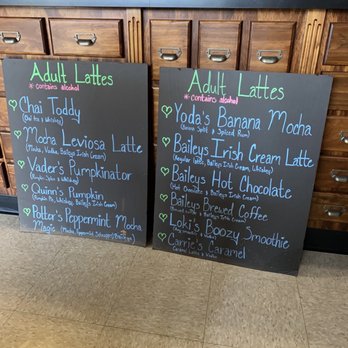 Adult Lattes
* contains alcohol
Chai Toddy
(Chai Tea & Whiskey)
Mocha Leviosa Latte
(Mocha, Vodka, Baileys Irish Cream)
Vader's Pumpkinator
(Pumpkin Spice & Whiskey)
Quinn's Pumpkin
(Pumpkin Pie, Whiskey, Baileys Irish Cream)
Potter's Peppermint Mocha
Magic (Mocha, Peppermint Schnapps)
Adult Lattes
* contains alcohol
Yoda's Banana Mocha
(Banana Split & Spiced Rum)
Baileys Irish Cream Latte
(Regular Latte, Baileys Irish Cream, Whiskey)
Baileys Hot Chocolate
(Hot Chocolate & Baileys Irish Cream)
Baileys Brewed Coffee
& Baileys Irish Cream)
Loki's Boozy Smoothie
Carrie's Caramel
(Caramel Latte & Vodka)